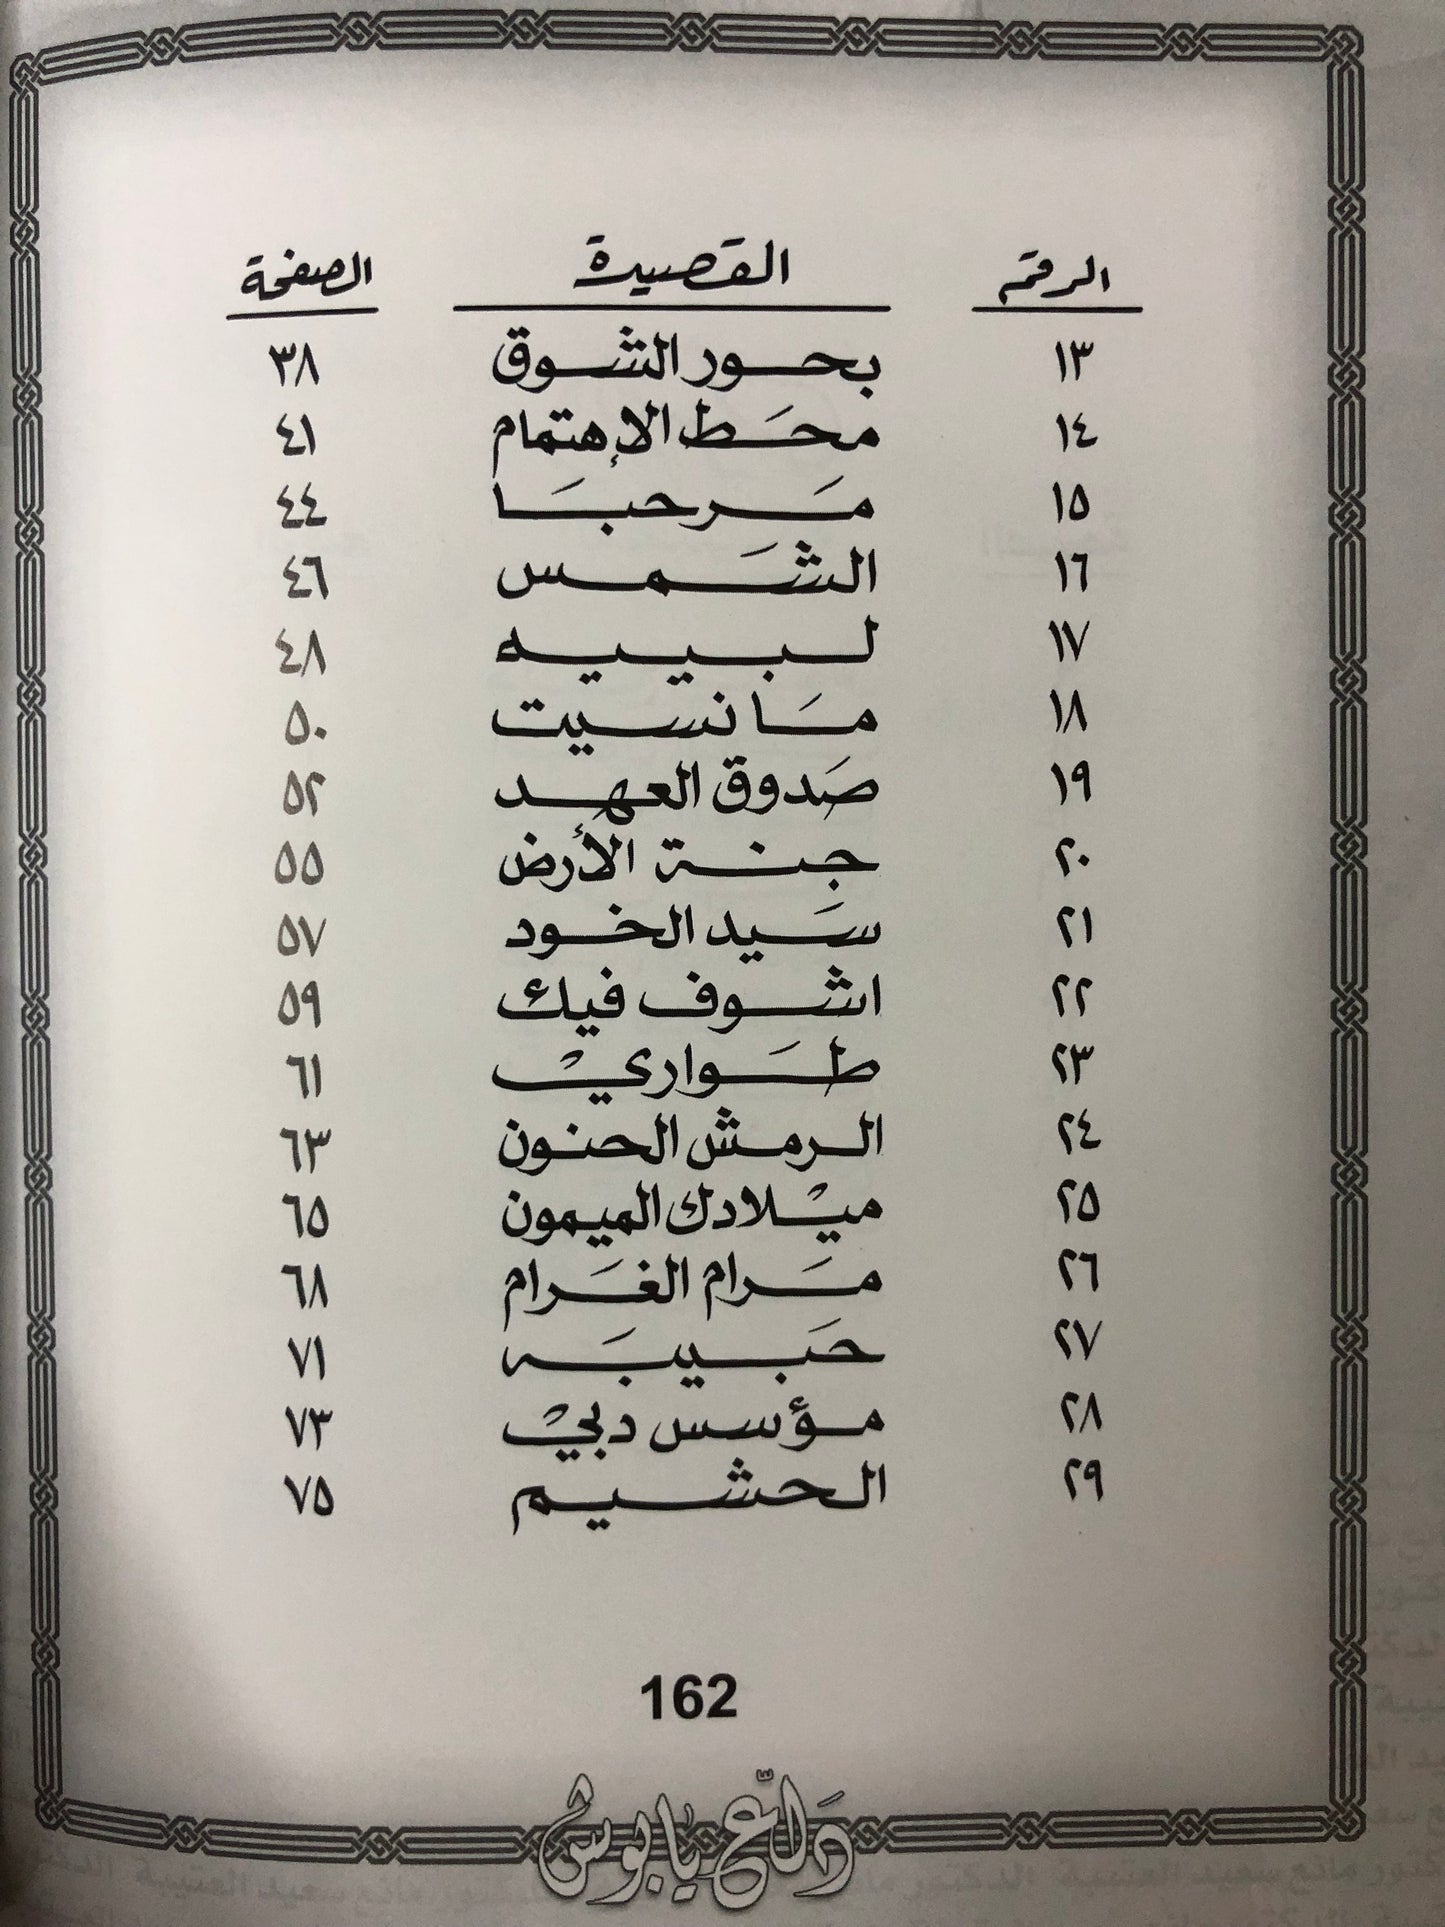 الرقم القصيدة الصفحة
١٣ بحور الشوق ٣٨
١٤ محَط الإهتمام ٤١
١٥ مَرحبَا ٤٤
١٦ الشَمس ٤٦
١٧ لبييه ٤٨
١٨ مَا نسيت ٥٠
١٩ صَدوق العهد ٥٢
٢٠ جنة الأرض ٥٥
٢١ سَيد الخود ٥٧
٢٢ اشوف فيك ٥٩
٢٣ طَواريْ ٦١
٢٤ الرمش الحنون ٦٣
٢٥ ميْلادك الميمون ٦٥
٢٦ مَرام الغَرام ٦٨
٢٧ حَبيبَه ٧١
٢٨ مؤسس دبيْ ٧٣
٢٩ الحشيم ٧٥
162